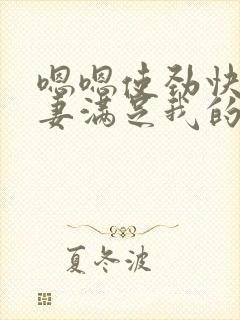 嗯嗯使劲快
妻满足我的
夏冬波